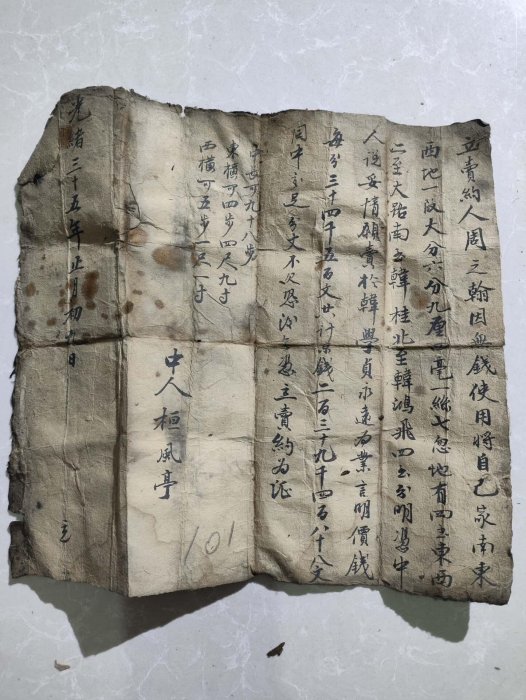 立賣約人周之翰因無錢使用將自己家南東
西地一段大分六分九厘四毫一絲七忽地有四至東西
二至大路南至韓桂北至韓鴻飛四至分明憑中
人說妥情願賣於韓學貞永遠為業言明價錢
每分三十四千五百文共計錢二百三十九千四百八十八文
同中交足分文不欠恐後無憑立賣約為証
中長可九十八步
東橫可四步四尺九寸
西橫可五步一尺一寸
中人 桓風亭
101
光緒三十五年正月初九日 立